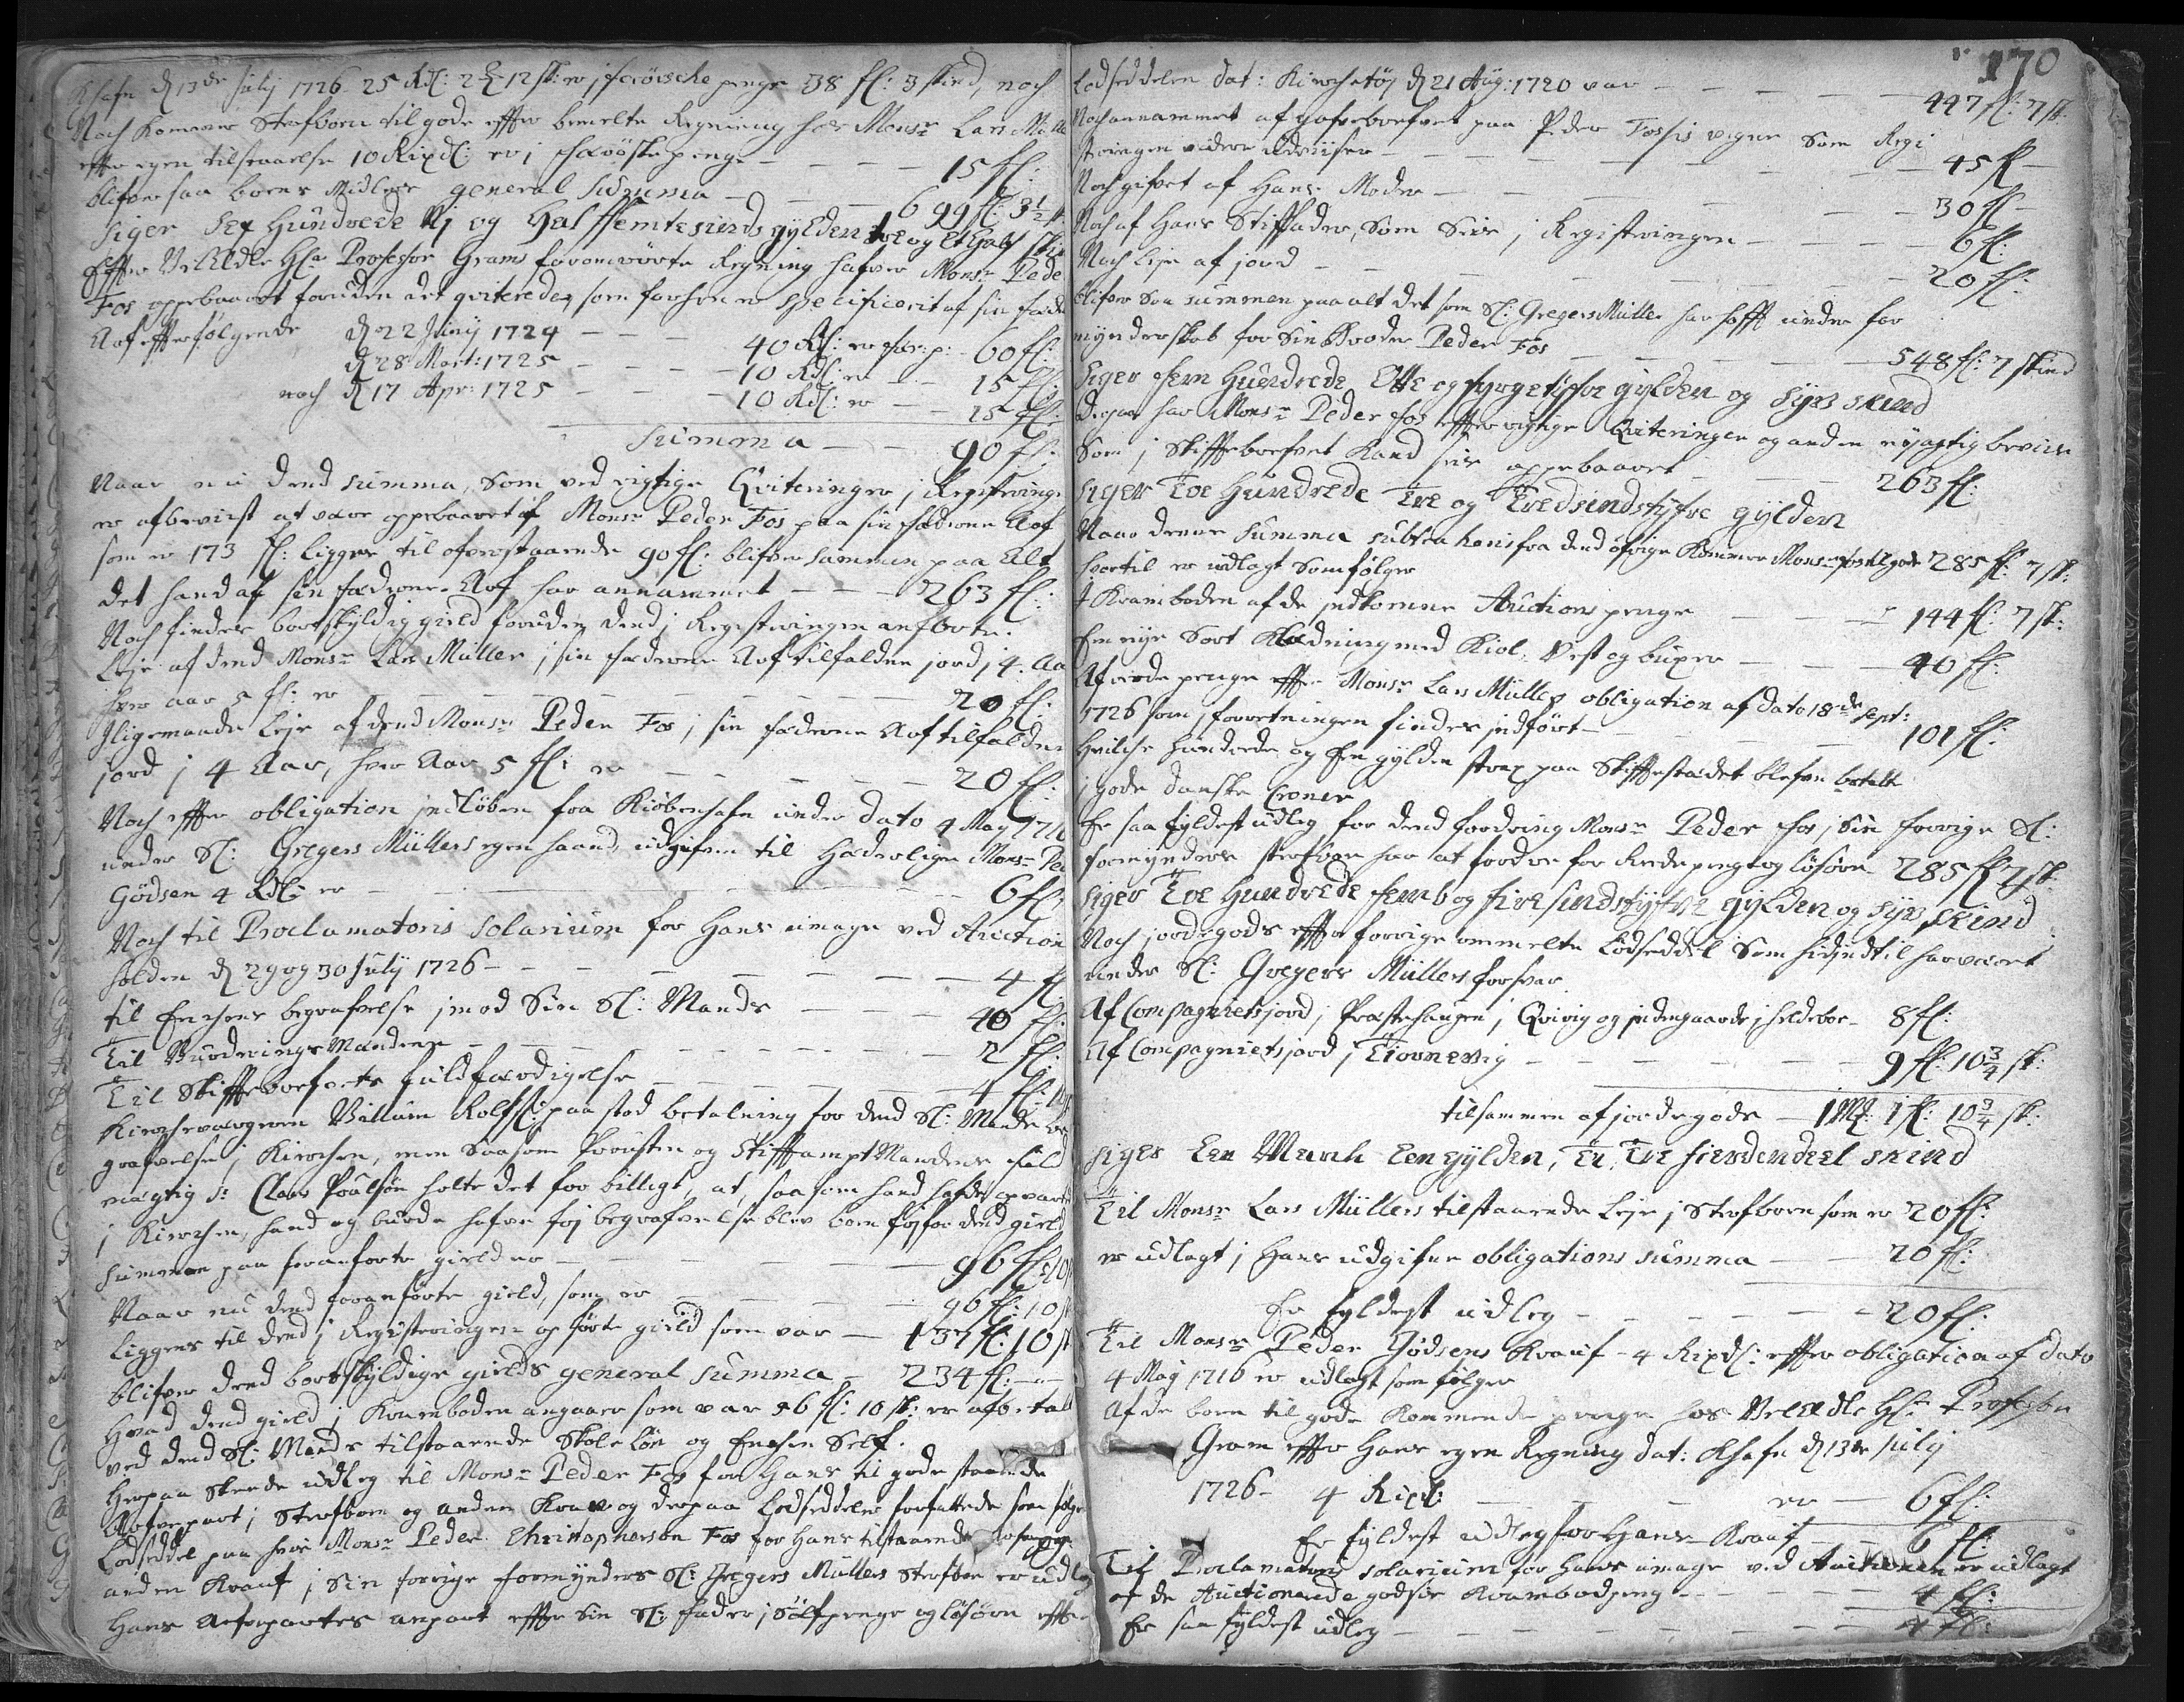 Khafn d 13de Julij 1726 25 Rdl: 2 12 sk: er i færöische penge 38 fl: 3 skind, noch
Noch kommer Sterfboen til gode effter bemelte Regning hos Monsr Lars Mülle
effter egen tilstaaelse 10 Rixdl: er i færöiske penge — — — 15 fl:
blifver saa boens Midler general Summa — — — 699 fl: 3½ sk
siger Sex Hundrede Ni og Halffemtesinds gylden tre og et halv skin
Effter VelEdle Hr Professor Grams foromrörte Regning hafver Monsr Pede
Fos oppebaaret foruden det qviterede, som forhen er specificerit af sin fæde
Arf effterfølgende d 22 Junij 1724 — — — 40 Rdl: er fær: p: 60 fl:
d 28 Mart: 1725 — — — 10 Rdl: er — — 15 fl:
noch d 17 Apr: 1725 — — — 10 Rdl: er — — 15 fl:
Summa — — 90 fl:
Naar nu dend summa, som ved rigtige Qviteringer i Registeringe
er afbevist at være oppebaaret af Monsr Peder Fos paa sin fæderne Arf
som er 173 fl: ligges til ofvenstaaende 90 fl: blifver summen paa alt
det hand af sin fæderne Arf har annammet — — — 263 fl:
Noch findes bortskyldig gield foruden dend i Registeringen anförte.
Leje af dend Monsr Lars Müller i sin fæderne Arf tilfalden jord i 4 Aa
hver aar 5 fl: er — — — 20 fl:
Jligemaade leje af dend Monsr Peder Fos i sin fæderne Arf tilfalden
jord i 4 Aar, hver Aar 5 fl: er — — — 20 fl:
Noch effter obligation indlöben fra Kiöbenhafn under dato 4 May 1716
under Sl: Gregers Müllers egen haand udgifven til Hæderlige Monsr Ped
Gödsen 4 Rdl: er — — — 6 fl:
Noch til Proclamatoris Solarium for Hans umage ved Auction
holden d 29 og 30 Julij 1726 — — — 4 fl:
til Enchens begrafvelse imod Sin Sl: Mands — — — 40 fl:
Til Vurderings Mændene — — — 2 fl:
Til Skiffte brefvets fuldfærdigelse — — — 4 fl:
Kirchevargeren Villum Rolfs: paa stod betalning for dend Sl: Mands be
grafvelse i Kirchen, men saasom Prousten og Stifftampt Mandens fuld
mægtig Sr Claus Poulsön holte det for billigt, at, saasom hand hafde opvartet
i Kirchen, hand og burde hafve fri begrafvelse blev boen fri for dend gield
summen paa foranförte gield er — — — 96 fl: 10
Naar nu dend foranförte gield, som er — — — 96 fl: 10 s
ligges til dend i Registeringen opförte gield som var — 137 fl: 10 s
blifver dend bortskyldige gields general Summa — 234 fl: —
Hvad dend gield i Kramboden angaaer som var 56 fl: 10 sk: er afbetalt
ved dend Sl: Mands tilstaaende Skole lön og Enchen Self.
Herpaa skeede udleg til Monsr Peder Fos for Hans til gode staaende
Arfvepart i Sterfboen og anden Kraw og derpaa Lodseddeler forfattede som fölge
Lodseddel paa hvis Monsr Peder Christophersön Fos for Hans tilstaaende Arfvepenge
anden Krauf i Sin forrige formynders Sl: Gregers Müllers Sterfboe er udlag
Hans Arfveparters anpart effter Sin Sl: Fader i Sölfpenge og lösöre effter
170
Lodseddelen dat: Kirchetöj d 21 Aug: 1720 var — — — 447 fl: 7 sk
Noch annammet af gafvebrefvet paa Peder Fossis vegne Som Regi
steringen videre udviiser — — — 45 fl —
Noch gifvet af Hans Moder — — — 30 fl —
Noch af Hans Stiffader, Som Sees i Registeringen — — — 6 fl:
Noch leje af jord — — — 20 fl:
blifver Saa summen paa alt det som Sl: Gregers Müller har hafft under for
mynderskab for Sin Broder Peder Fos — — — 548 fl: 7 skind
Siger fem Hundrede Otte og fyrgetifve gylden og Syv skind
Derpaa har Monsr Peder Fos effter rigtige Qviteringer og anden nöyagtig beviis
Som i Skifftebrefvet kand sees oppebaaret — — — 263 fl:
Siger Toe Hundrede Tre og Tredsindstyfve gylden
Naar denne Summa Subtraheris fra dend öfrige kommer Monsr Fos til gode 285 fl: 7 sk:
hvortil er udlagt Som fölger
I Kramboden af de indkomne Auctions penge — — — 144 fl: 7 sk:
En nye Sort Klædning med Kiol, Vest og buxer — — — 40 fl:
Af rede penge effter Monsr Lars Müllers obligation af dato 18de Sept:
1726 som i forretningen findes indfört — — — 101 fl:
Hvilche hundrede og En gylden strax paa Skifftestædet blefve betalte
i gode danske Croner
Er saa fyldest udleg for dend fordring Monsr Peder Fos i Sin forrige Sl:
formynders sterfboe har at fordre for Rede penge og lösöre 285 fl 7 sk:
Siger Toe Hundrede femb og firesindstyfve gylden og Syv Skind
Noch jordegods effter forrige ommelte Lodseddel Som hidindtil har været
under Sl: Gregers Müllers forsvar
Af Compagniets jord i Præstehaugen i Qvivig og indengaards i heldeboe — 8 fl:
Af Compagniets jord i Tiörnevig — — — 9 fl: 10¾ sk:
tilsammen af jordegods — 1 Mk: 1 fl: 10¾ sk:
Siger Een March Een gylden, Ti, Tre fierdendeel skind
Til Monsr Lars Müllers tilstaaende leje i Sterfboen som er 20 fl:
er udlagt i Hans udgifne obligations summa — — 20 fl:
Er fyldest udleg — — — 20 fl:
Til Monsr Peder Gödsens Krauf — 4 Rixdl: effter obligation af dato
4 May 1716 er udlagt som fölger
Af de boen til gode kommende penge hos VelEdle Hr Professor
Gram effter Hans egen Regning dat: Khafn d 13de Julij
1726 — 4 Rixdl: — — er — 6 fl:
Er fyldest udleg for Hans Krauf — 6 fl:
Til Proclamatoris solarium for Hans umage ved Auctionen er udlagt
af de Auctionerede godsis Krambodpeng — — 4 fl:
Er saa fyldest udleg — — — 4 fl: